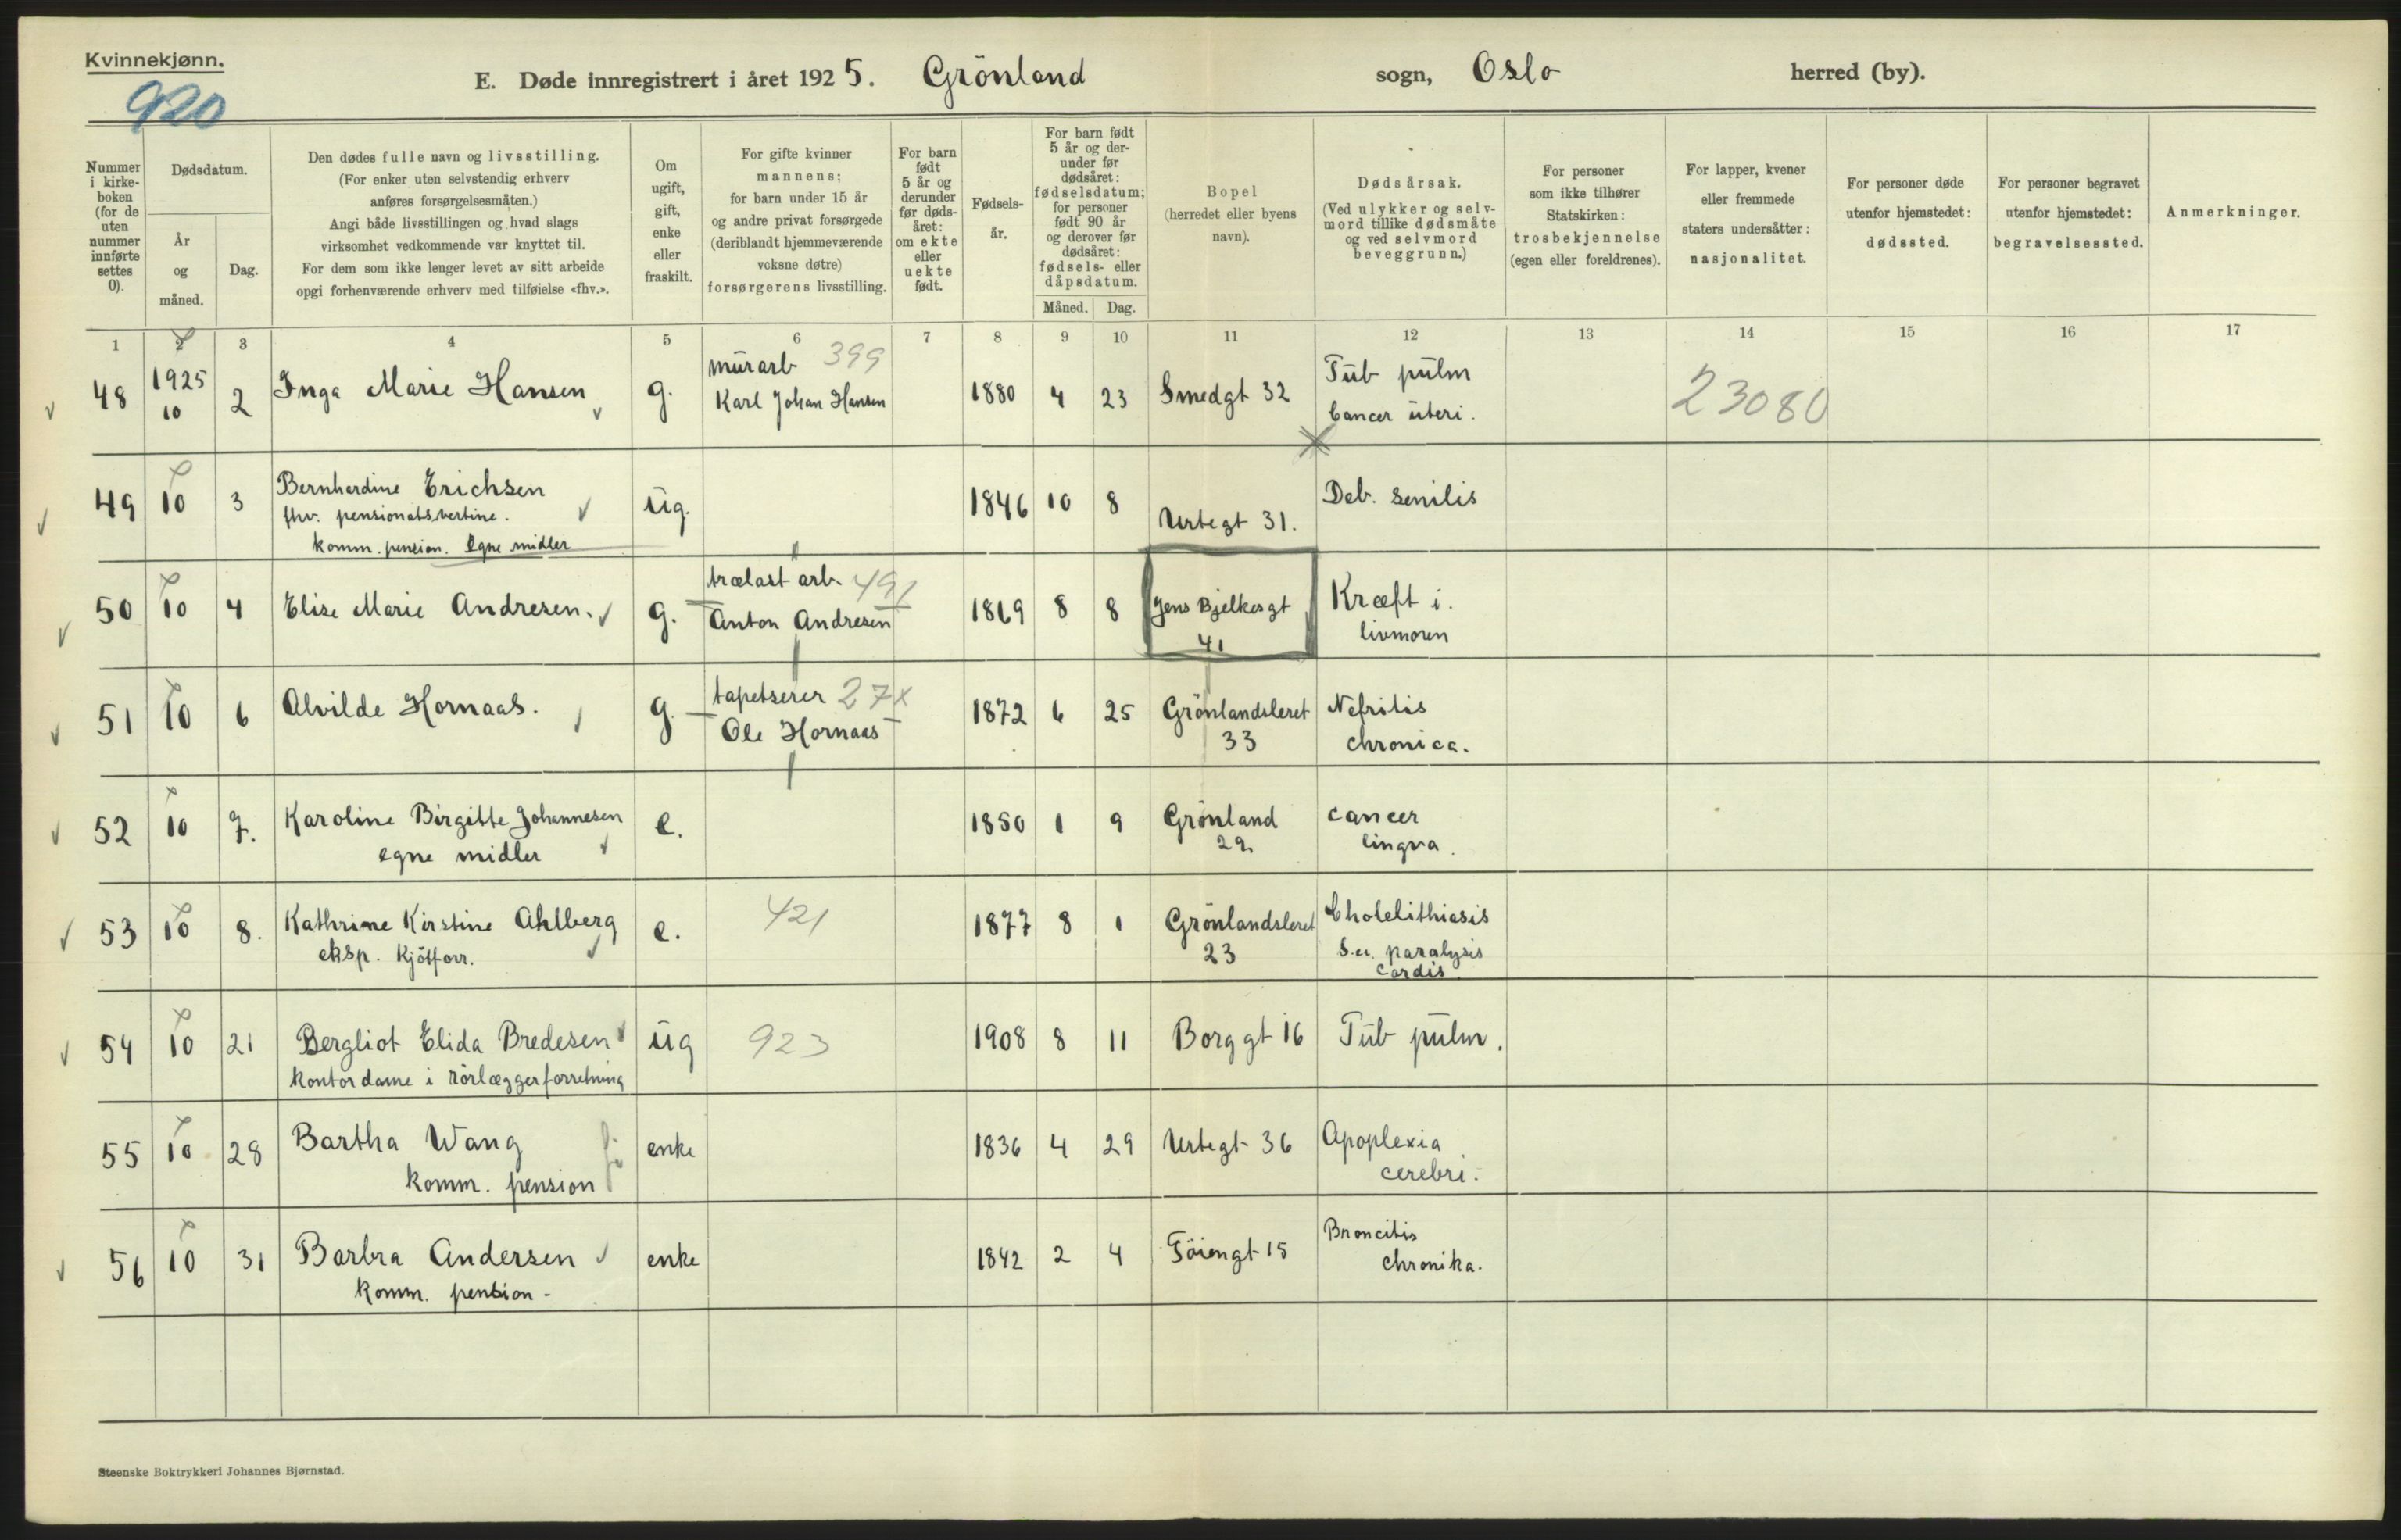 Kvinnekjønn.
920
E. Døde innregistrert i året 1925. Grönland sogn, Oslo herred (by).
Nummer i kirkeboken (for de uten nummer innførte settes 0).
Dødsdatum.
År og måned.
Dag.
Den dødes fulle navn og livsstilling.
(For enker uten selvstendig erhverv
anføres forsørgelsesmåten.)
Angi både livsstillingen og hvad slags
virksomhet vedkommende var knyttet til.
For dem som ikke lenger levet av sitt arbeide
opgi forhenværende erhverv med tilføielse «fhv.».
Om ugift, gift, enke eller fraskilt.
For gifte kvinner
mannens;
for barn under 15 år
og andre privat forsørgede
(deriblandt hjemmeværende
voksne døtre)
forsørgerens livsstilling.
For barn født 5 år og derunder før dødsåret: om ekte eller uekte født.
Fødselsår.
For barn født 5 år og derunder før dødsåret: fødselsdatum; for personer født 90 år og derover før dødsåret: fødsels- eller dåpsdatum.
Måned. Dag.
Bopel
(herredet eller byens
navn).
Dødsårsak.
(Ved ulykker og selvmord tillike dødsmåte og ved selvmord beveggrunn.)
For personer
som ikke tilhører
Statskirken:
trosbekjennelse
(egen eller foreldrenes).
For lapper, kvener
eller fremmede
staters undersåtter:
nasjonalitet.
For personer døde
utenfor hjemstedet:
dødssted.
For personer begravet
utenfor hjemstedet:
begravelsessted.
Anmerkninger.
1 2 3 4 5 6 7 8 9 10 11 12 13 14 15 16 17
48 1925 10 2 Inga Marie Hansen g. murarb 399 Karl Johan Hansen 1880 4 23 Smedgt 32 Tub pulm Cancer uteri. 23080
49 10 3 Bernhardine Erichsen ug. 1846 10 8 Urtegt 31. Deb. senilis
fhv. pensionatsvertine.
komm. pension. Egne midler
50 10 4 Elise Marie Andresen. g. trælast arb 491 Anton Andresen 1869 8 8 Jens Bjelkesgt 41 Kræft i. livmoren
51 10 6 Alvilde Hornaas. g. tapetserer 27x Ole Hornaas 1872 6 25 Grönlandsleret 33 Nefritis chronica.
52 10 7. Karoline Birgitte Johannesen e. 1850 1 9 Grönland 29 cancer lingva.
egne midler
53 10 8. Kathrine Kirstine Ahlberg e. 421 1877 8 1 Grönlandsleret 23 Cholelithiasis
eksp. Kjötforr. paralysis cordis
54 10 21 Bergliot Elida Bredesen ug 923 1908 8 11 Borggt 16 Tub pulm.
kontordame i rörlæggerforretning
55 10 28 Bartha Wang enke 1836 4 29 Urtegt 36 Apoplexia cerebri.
komm. pension
56 10 31 Barbra Andersen enke 1842 2 4 Töiengt 15 Broncitis chronika.
komm. pension-
Steenske Boktrykkeri Johannes Bjørnstad.